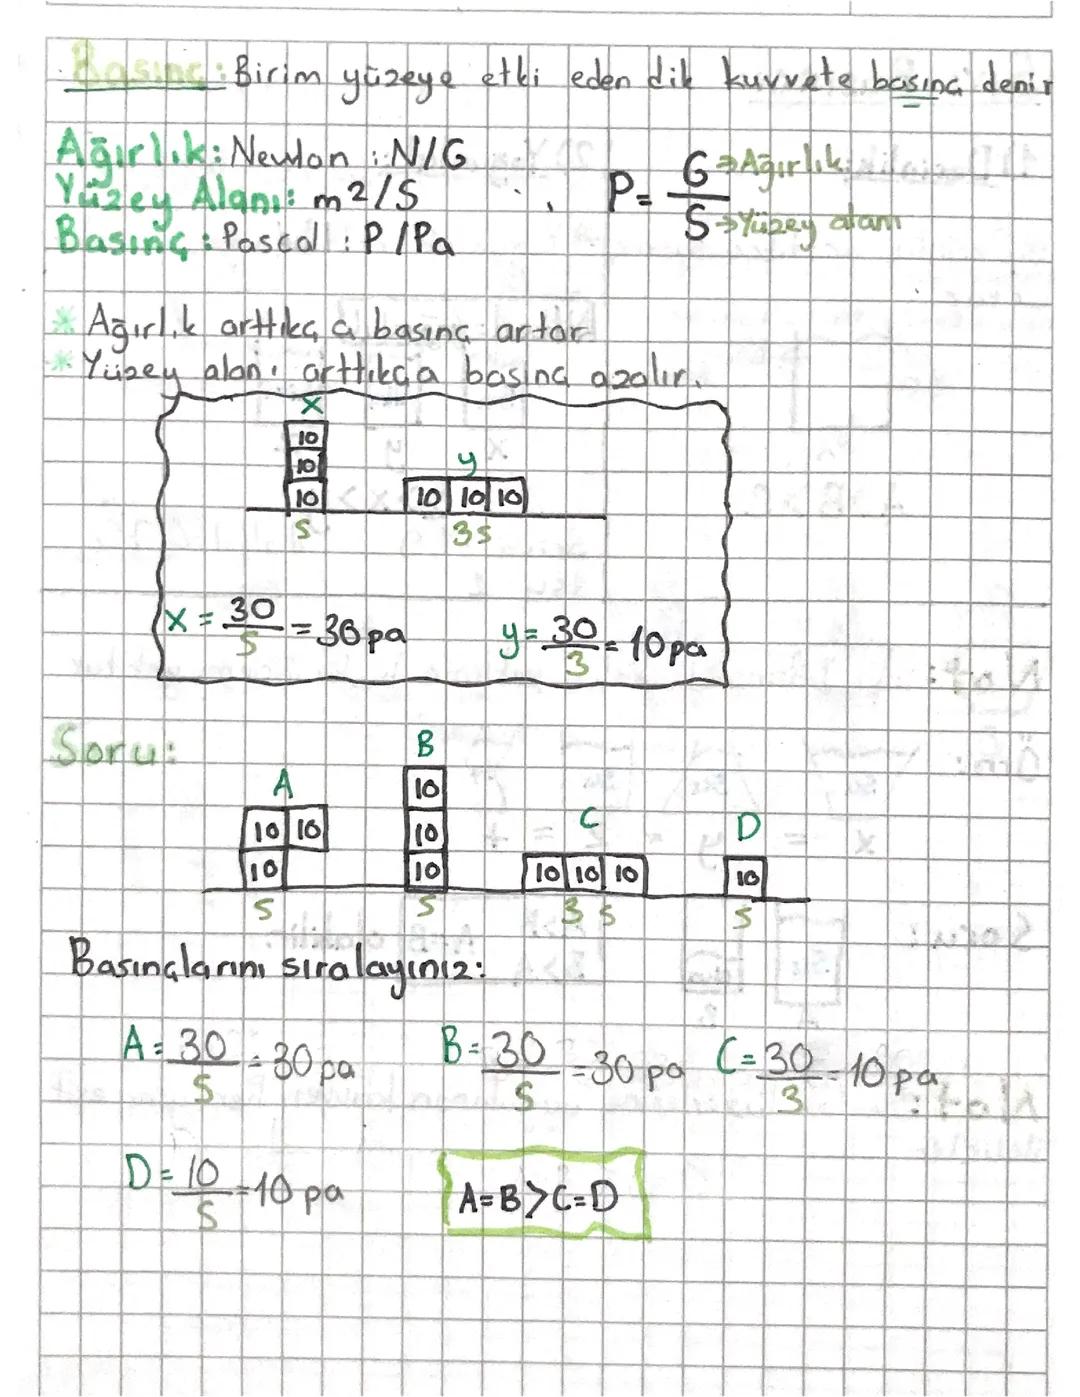 Basınç: Birim yüzeye etki eden dik kuvvete basınç denir
Ağırlık: Newton : N/G
Yüzey Alanı: m2/S
Basınç: Pascal : P/Pa
P= G/S
G⇒Ağırlık
S⇒Yüzey alanı
* Ağırlık arttıkça basınç artar
* Yüzey alanı arttıkça basınç azalır.
x
10
10
10
S
y
10 10 10
3S
x = 30/S = 30 pa
y= 30/3 = 10 pa
Soru:
A
10 10
10
S
B
10
10
10
S
C
10 10 10
3S
D
10
S
Basınçlarını sıralayınız:
A= 30/S = 30 pa
B= 30/S =30 pa
C= 30/3 = 10 pa
D= 10/S =10 pa
A=B>C=D